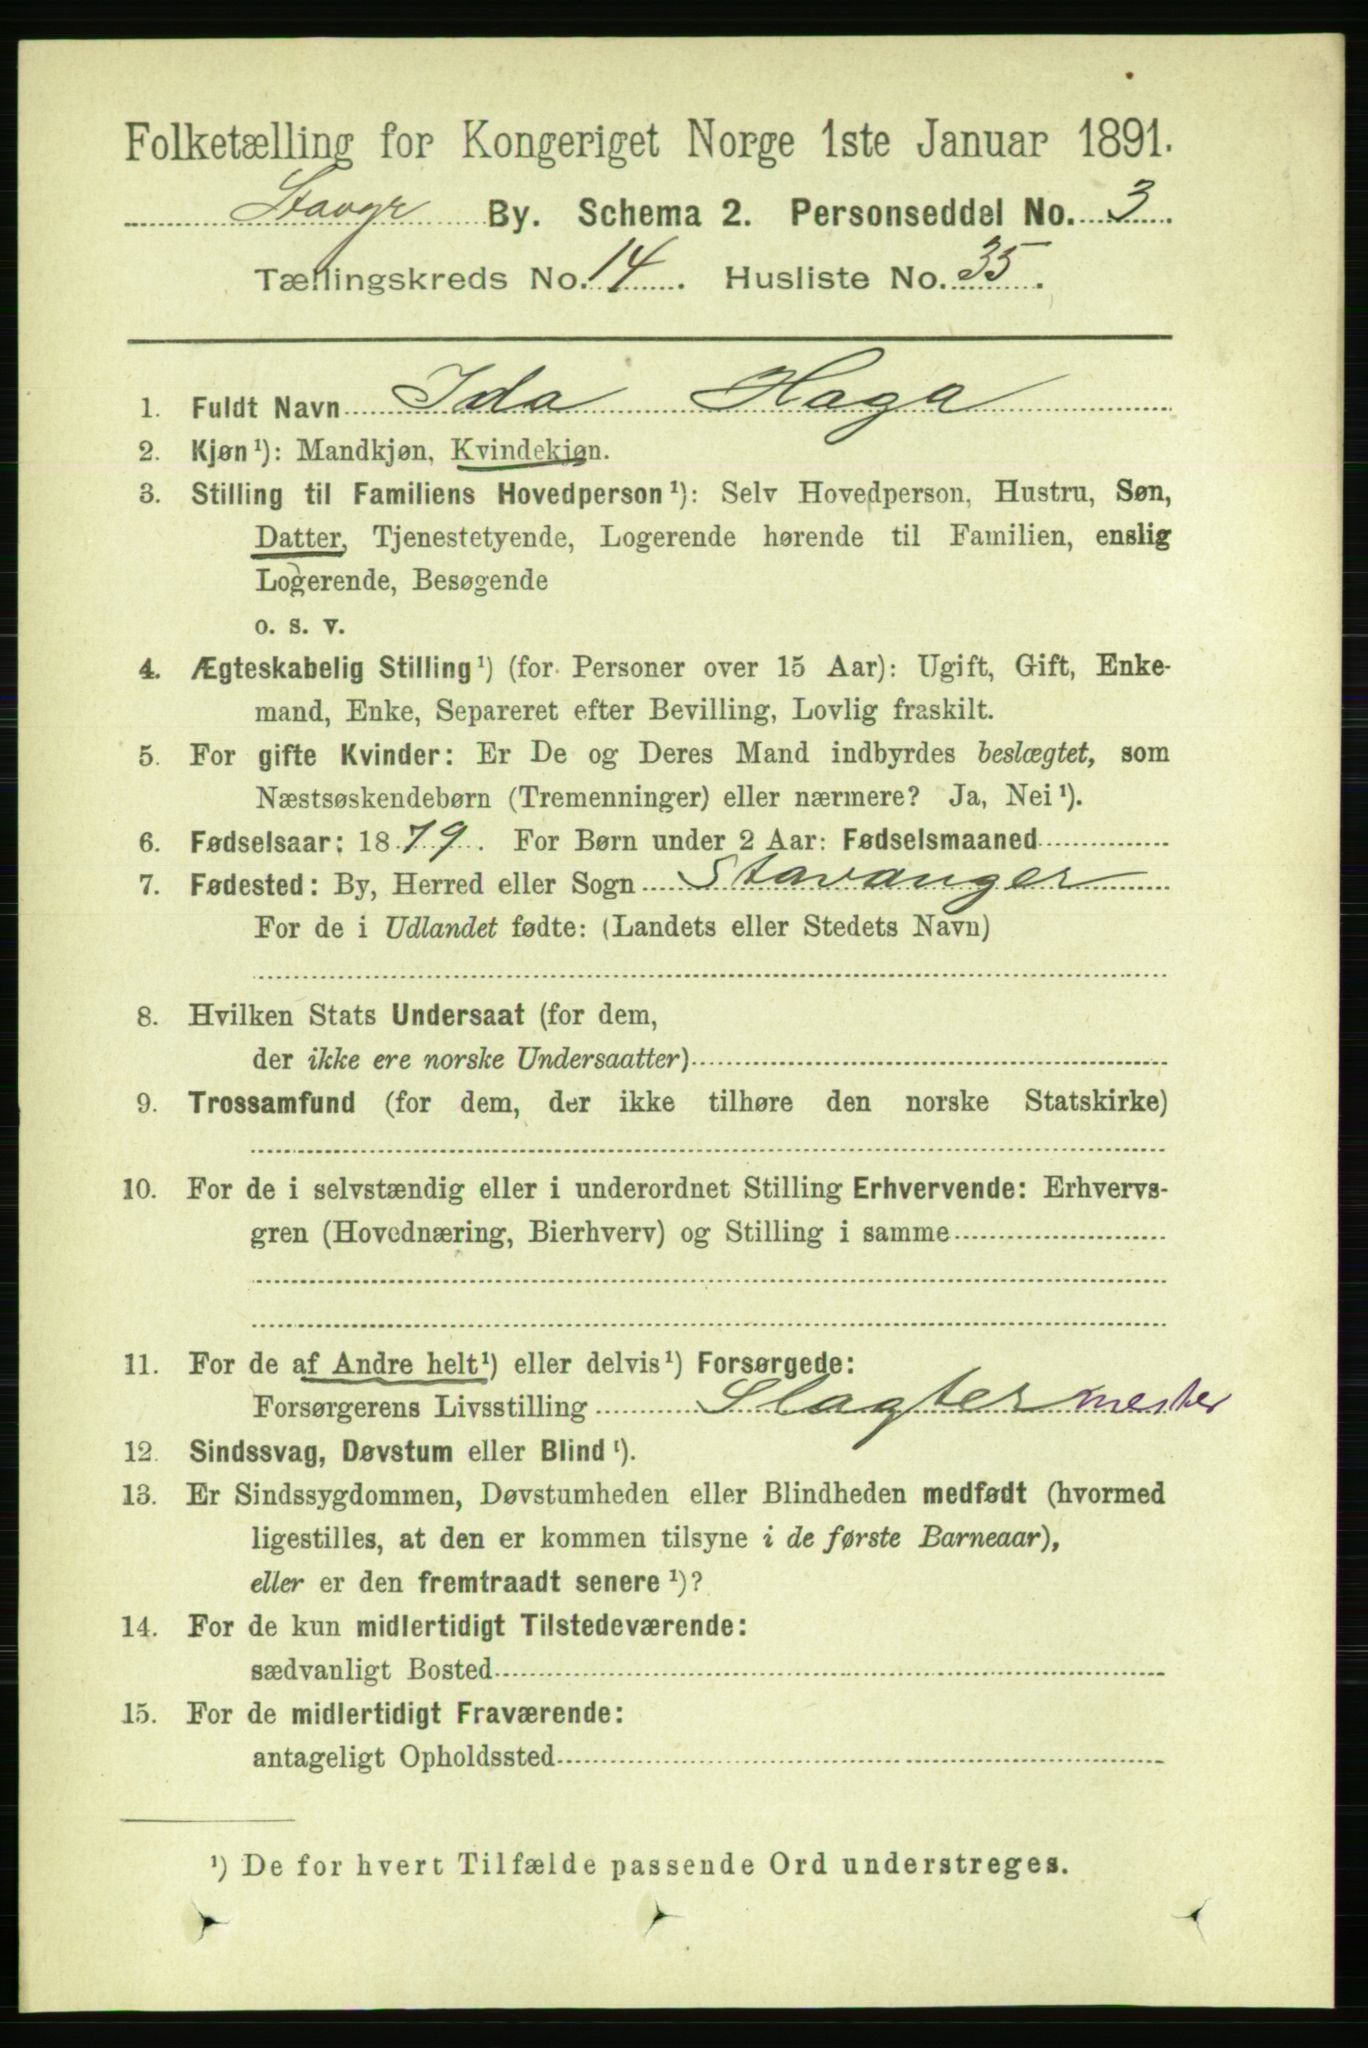 Folketælling for Kongeriget Norge 1ste Januar 1891.
Stavgr By. Schema 2. Personseddel No. 3.
Tællingskreds No. 14. Husliste No. 35.
1. Fuldt Navn Ida Haga
2. Kjøn¹): Mandkjøn, Kvindekjøn.
3. Stilling til Familiens Hovedperson¹): Selv Hovedperson, Hustru, Søn,
Datter, Tjenestetyende, Logerende hørende til Familien, enslig
Logerende, Besøgende
o. s. v.
4. Ægteskabelig Stilling¹) (for Personer over 15 Aar): Ugift, Gift, Enke-
mand, Enke, Separeret efter Bevilling, Lovlig fraskilt.
5. For gifte Kvinder: Er De og Deres Mand indbyrdes beslægtet, som
Næstsøskendebørn (Tremenninger) eller nærmere? Ja, Nei¹).
6. Fødselsaar: 1879. For Børn under 2 Aar: Fødselsmaaned
7. Fødested: By, Herred eller Sogn Stavanger
For de i Udlandet fødte: (Landets eller Stedets Navn)
8. Hvilken Stats Undersaat (for dem,
der ikke ere norske Undersaatter)
9. Trossamfund (for dem, der ikke tilhøre den norske Statskirke)
10. For de i selvstændig eller i underordnet Stilling Erhvervende: Erhvervs-
gren (Hovednæring, Bierhverv) og Stilling i samme
11. For de af Andre helt¹) eller delvis¹) Forsørgede:
Forsørgerens Livsstilling Slagtermester
12. Sindssvag, Døvstum eller Blind¹).
13. Er Sindssygdommen, Døvstumheden eller Blindheden medfødt (hvormed
ligestilles, at den er kommen tilsyne i de første Barneaar),
eller er den fremtraadt senere¹)?
14. For de kun midlertidigt Tilstedeværende:
sædvanligt Bosted
15. For de midlertidigt Fraværende:
antageligt Opholdssted
¹) De for hvert Tilfælde passende Ord understreges.